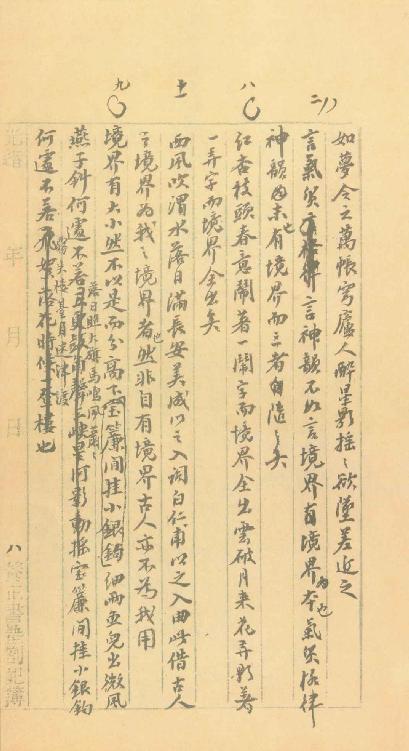 如夢令之萬帳穹廬人醉星影搖〻欲墜差近之
二八
言氣質言格律言神韻不如言境界有境界為本也氣質格律
神韻末也有境界而三者自隨之矣
八
紅杏枝頭春意鬧著一鬧字而境界全出雲破月來花弄影著
一弄字而境界全出矣
土
西風吹渭水落日滿長安美成以之入詞白仁甫以之入曲此借古人
之境界為我之境界者也然非自有境界古人亦不為我用
九
境界有大小然不以是而分高下寶簾間挂小銀鉤細雨魚兒出微風
燕子斜何遽不若落日照大旗馬鳴風蕭〻寶簾間挂小銀鉤
何遽不若霧失樓臺月迷津渡也
光緒 年 月 日
八